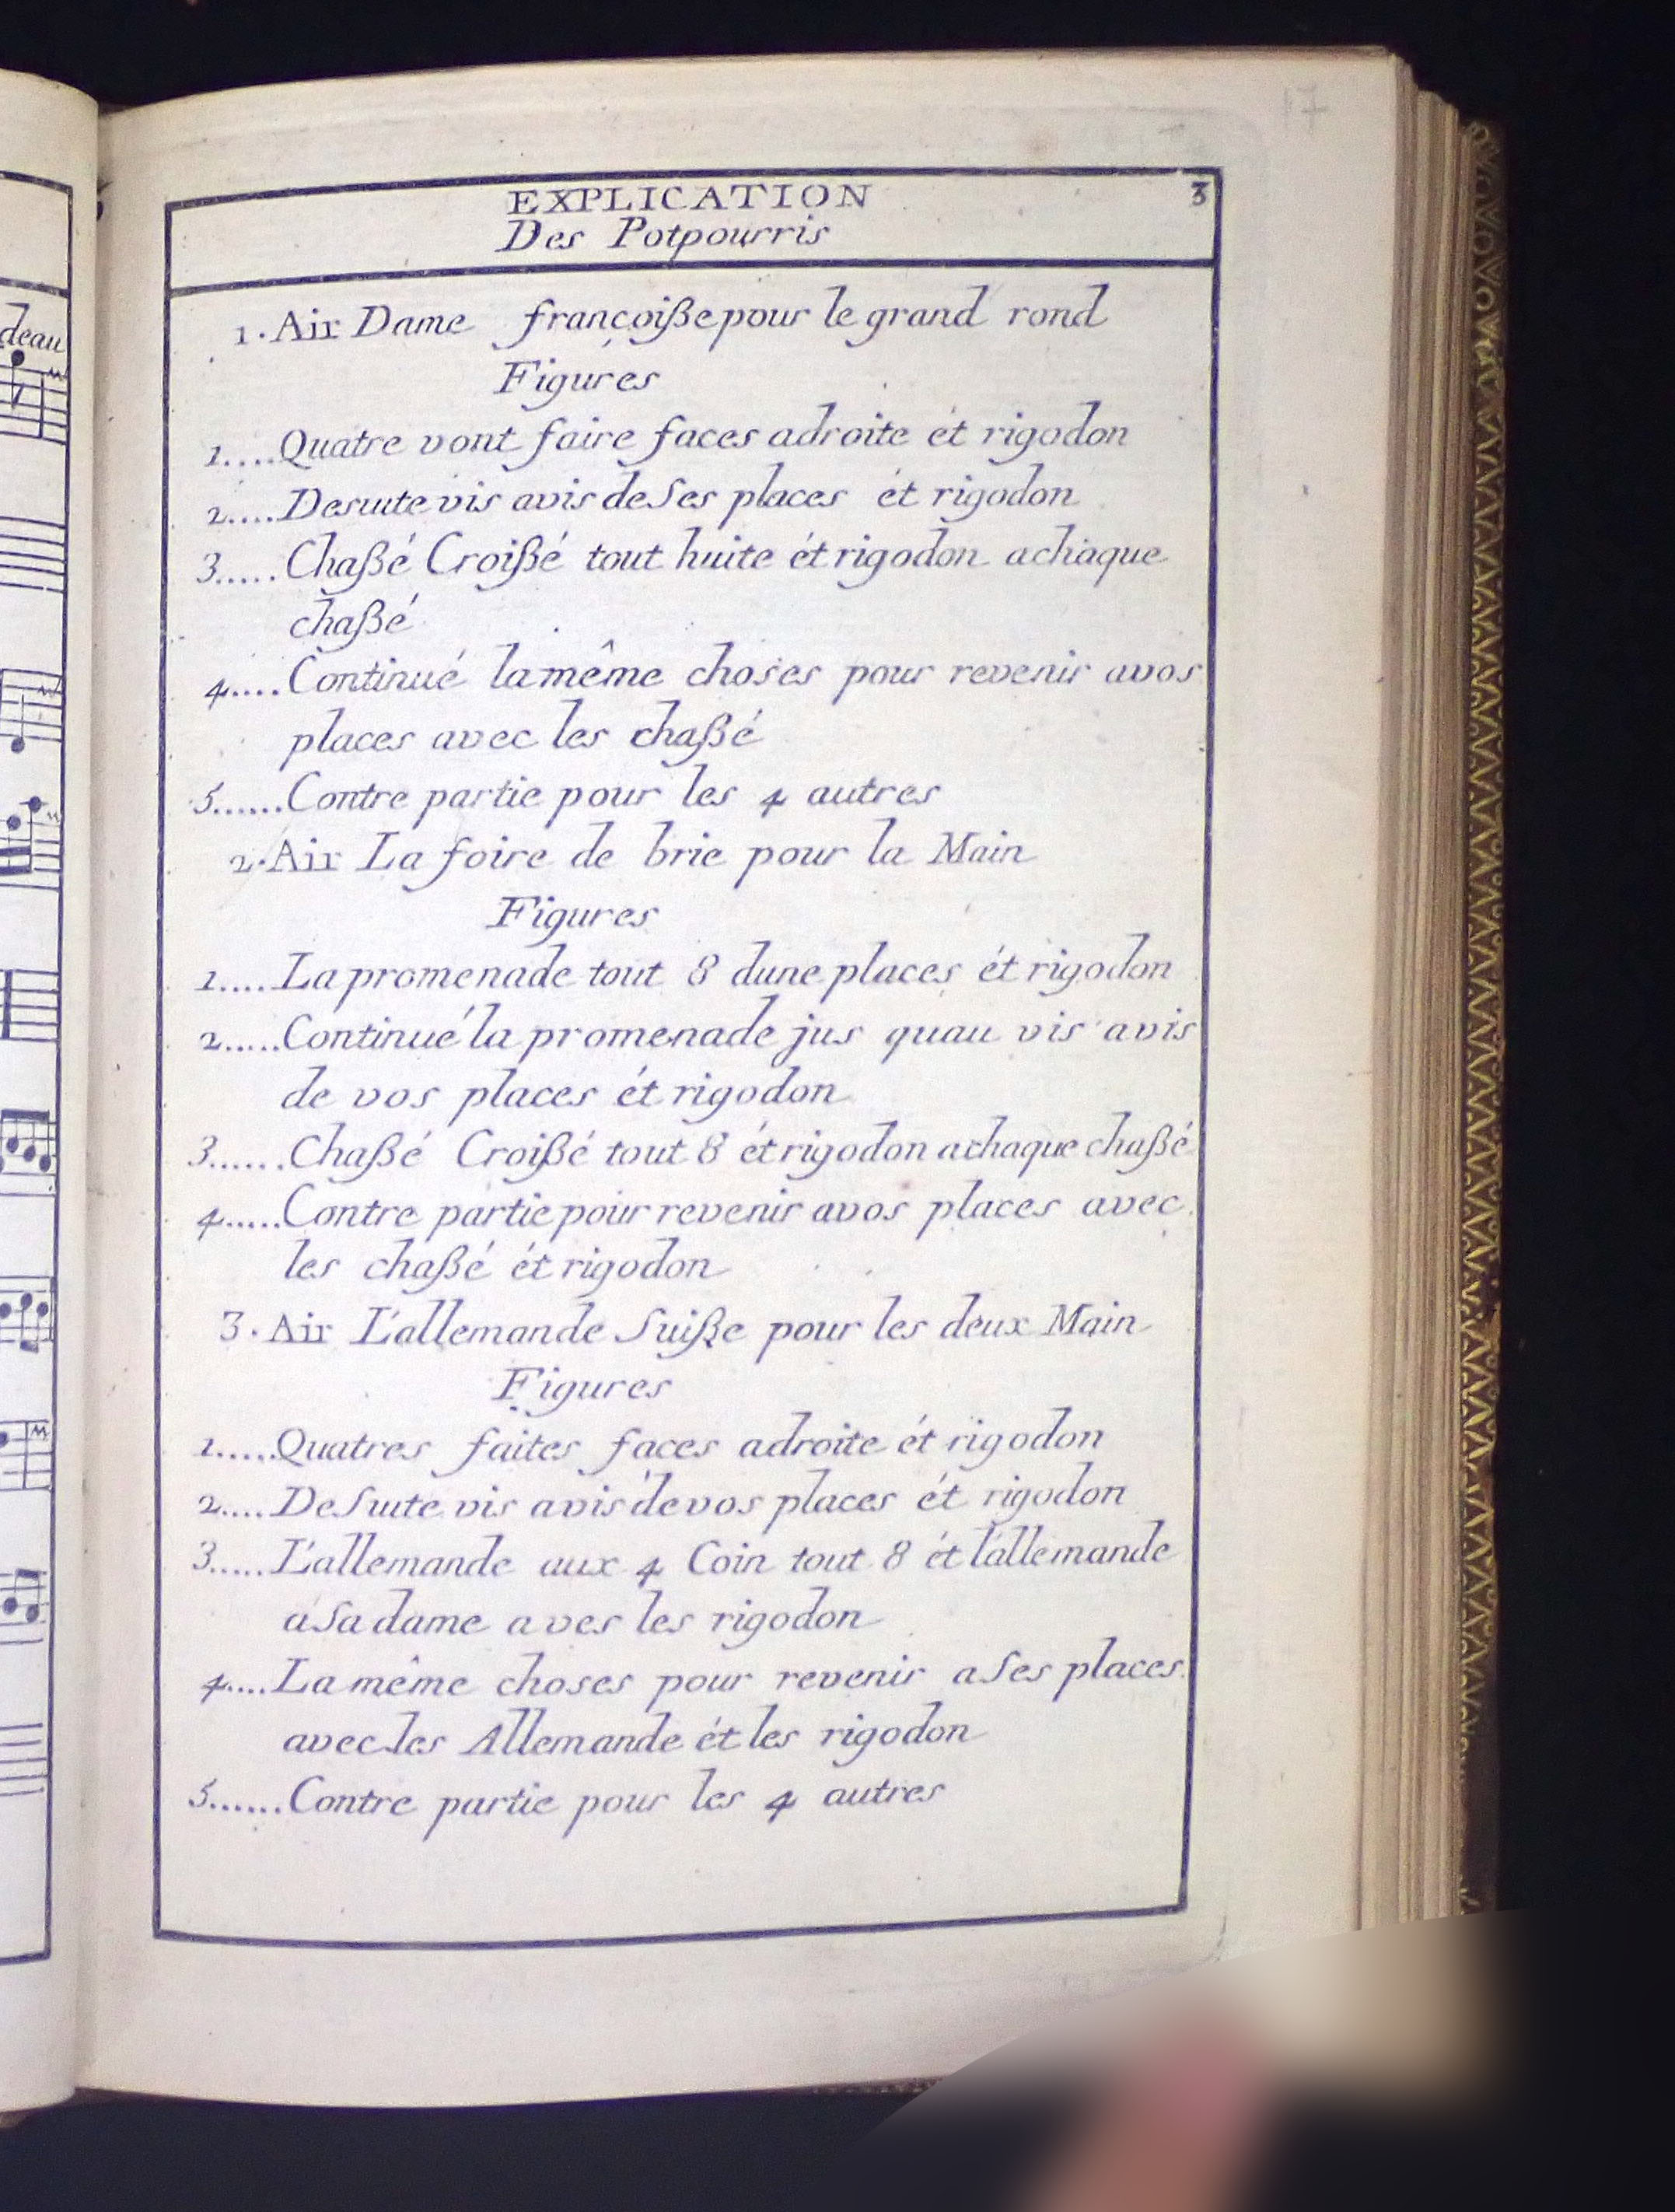 deau
17
EXPLICATION 3
Des Potpourris
1. Air Dame françoiße pour le grand rond
Figures
1....Quatre vont faire faces adroite ét rigodon
2....Desuite vis avis de Ses places ét rigodon
3.....Chaßé Croißé tout huite ét rigodon achaque
chaßé
4....Continué la même choses pour revenir avos
places avec les chaßé
5......Contre partie pour les 4 autres
2. Air La foire de brie pour la Main
Figures
1....La promenade tout 8 dune places ét rigodon
2.....Continué la promenade jus quau vis avis
de vos places ét rigodon
3......Chaßé Croißé tout 8 ét rigodon achaque chaßé
4.....Contre partie pour revenir avos places avec
les chaßé ét rigodon
3. Air L'allemande Suiße pour les deux Main
Figures
1.....Quatres faites faces adroite ét rigodon
2....De Suite vis avis de vos places ét rigodon
3.....L'allemande aux 4 Coin tout 8 ét l'allemande
a Sa dame aves les rigodon
4....La même choses pour revenir a Ses places
avec les Allemande ét les rigodon
5......Contre partie pour les 4 autres